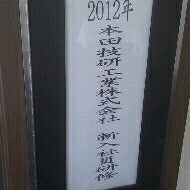 2012年
本田技研工業株式会社 新入社員研修